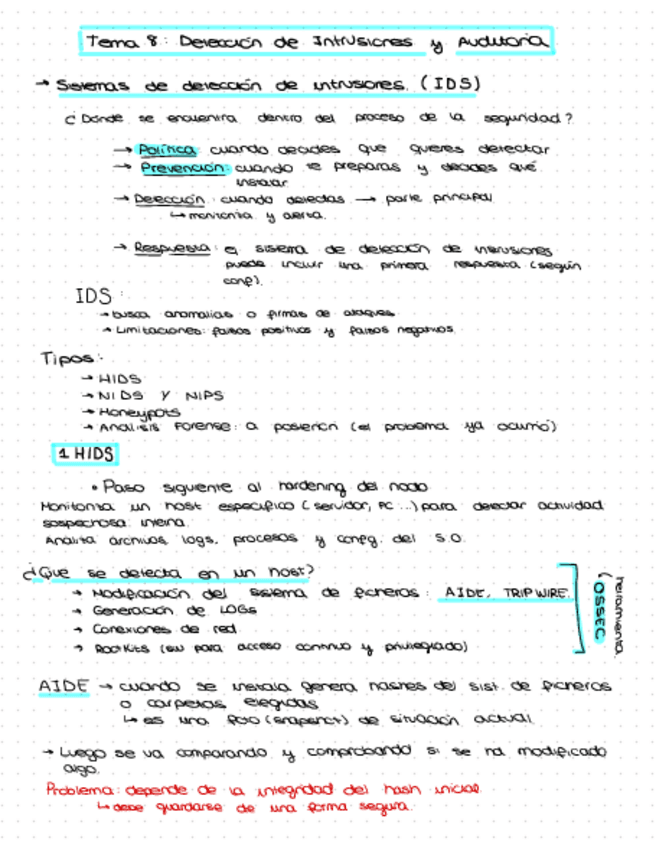 Tema 8: Detección de Intrusiones y Auditoría
→ Sistemas de detección de intrusiones (IDS)
¿Dónde se encuentra dentro del proceso de la seguridad?
→ Política: cuando decides que quieres detectar
→ Prevención: cuando te preparas y decides qué
instalar
→ Detección: cuando detectas → parte principal
↳ monitoriza y alerta.
→ Respuesta: el sistema de detección de intrusiones
puede incluir una primera respuesta (según
conf).
IDS:
→ busca anomalías o firmas de ataques
→ Limitaciones: falsos positivos y falsos negativos.
Tipos:
→ HIDS
→ NIDS Y NIPS
→ Honeypots
→ Análisis Forense: a posteriori (el problema ya ocurrió)
1 HIDS
• Paso siguiente al hardening del nodo
Monitoriza un host específico (servidor, PC...) para detectar actividad
sospechosa interna.
Analiza archivos logs, procesos y config. del S.O.
¿Qué se detecta en un host?
→ Modificación del sistema de ficheros: AIDE, TRIPWIRE
→ Generación de LOGs
→ Conexiones de red
→ Rootkits (sw para acceso continuo y privilegiado)
herramienta:
OSSEC
AIDE → cuando se instala genera hashes del sist. de ficheros
o carpetas elegidas
↳ es una foto (snapshot) de situación actual
→ Luego se va comparando y comprobando si se ha modificado
algo.
Problema: depende de la integridad del hash inicial
↳ debe guardarse de una forma segura.